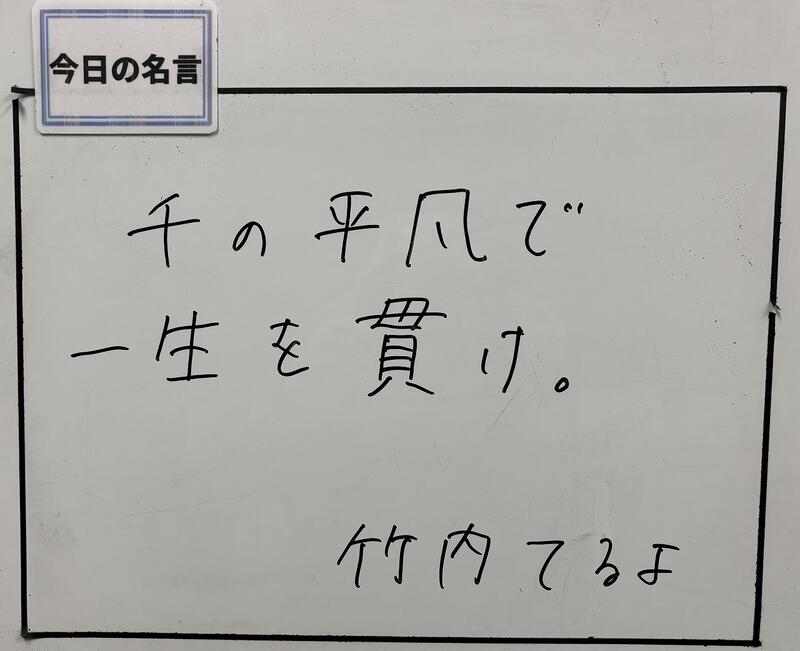 今日の名言
千の平凡で
一生を貫け。
竹内てるよ